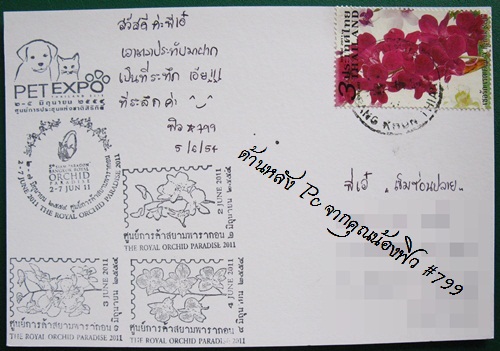 สวัสดี ค่ะพี่เอ้
เอาแมวประทับมาฝาก
เป็นที่ระทึก เอ้ย!!!
ที่ระลึก ค่ะ
ฟิว #799
5/6/54
PET EXPO
THAILAND 2011
๒-๕ มิถุนายน ๒๕๕๔
ศูนย์การประชุมแห่งชาติสิริกิติ์
3 ประเทศไทย THAILAND
SIAM PARAGON
BANGKOK ROYAL
ORCHID
PARADISE
2-7 JUN 11
2-7 JUNE 2011 THE ROYAL ORCHID PARADISE 2011
2 JUNE 2011
๒ มิถุนายน ๒๕๕๔
ศูนย์การค้าสยามพารากอน
THE ROYAL ORCHID PARADISE 2011
3 JUNE 2011
๓ มิถุนายน ๒๕๕๔
ศูนย์การค้าสยามพารากอน
THE ROYAL ORCHID PARADISE 2011
4 JUNE 2011
๔ มิถุนายน ๒๕๕๔
ศูนย์การค้าสยามพารากอน
THE ROYAL ORCHID PARADISE 2011
พี่เอ้
ด้านหลัง Pc จากคุณน้องฟิว #799